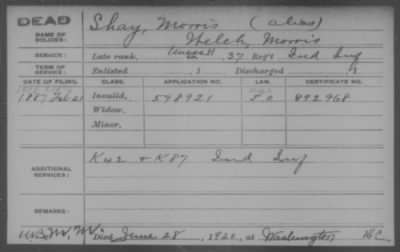 DEAD
NAME OF SOLDIER: Shay, Morris (alias)
Welch, Morris
SERVICE: Late rank, 37 Regt Ind Inf
TERM OF SERVICE: Enlisted , 1 Discharged , 1
DATE OF FILING. CLASS. APPLICATION NO. LAW. CERTIFICATE NO.
1887 Feb 21 Invalid, 598921 892968
Widow,
Minor,
ADDITIONAL SERVICES: K42 + K87 Ind Inf
REMARKS:
Died June 28, 1920, at Washington DC